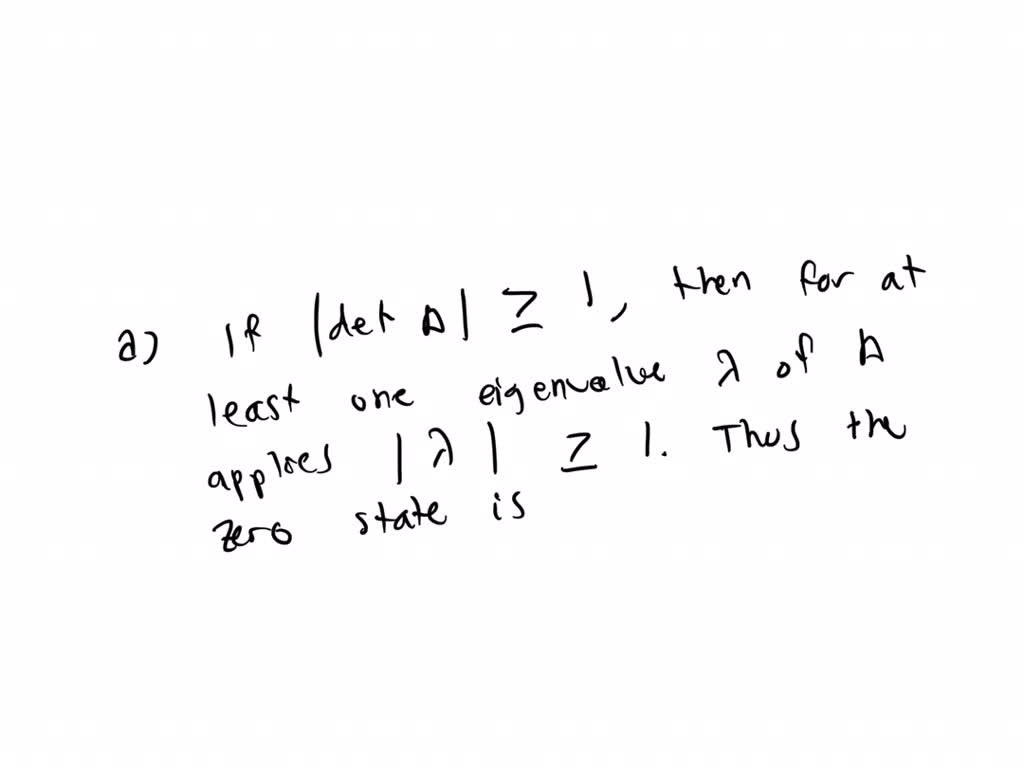 a) If |det A| ≥ 1, then for at
least one eigenvalue λ of A
applies |λ| ≥ 1. Thus the
zero state is